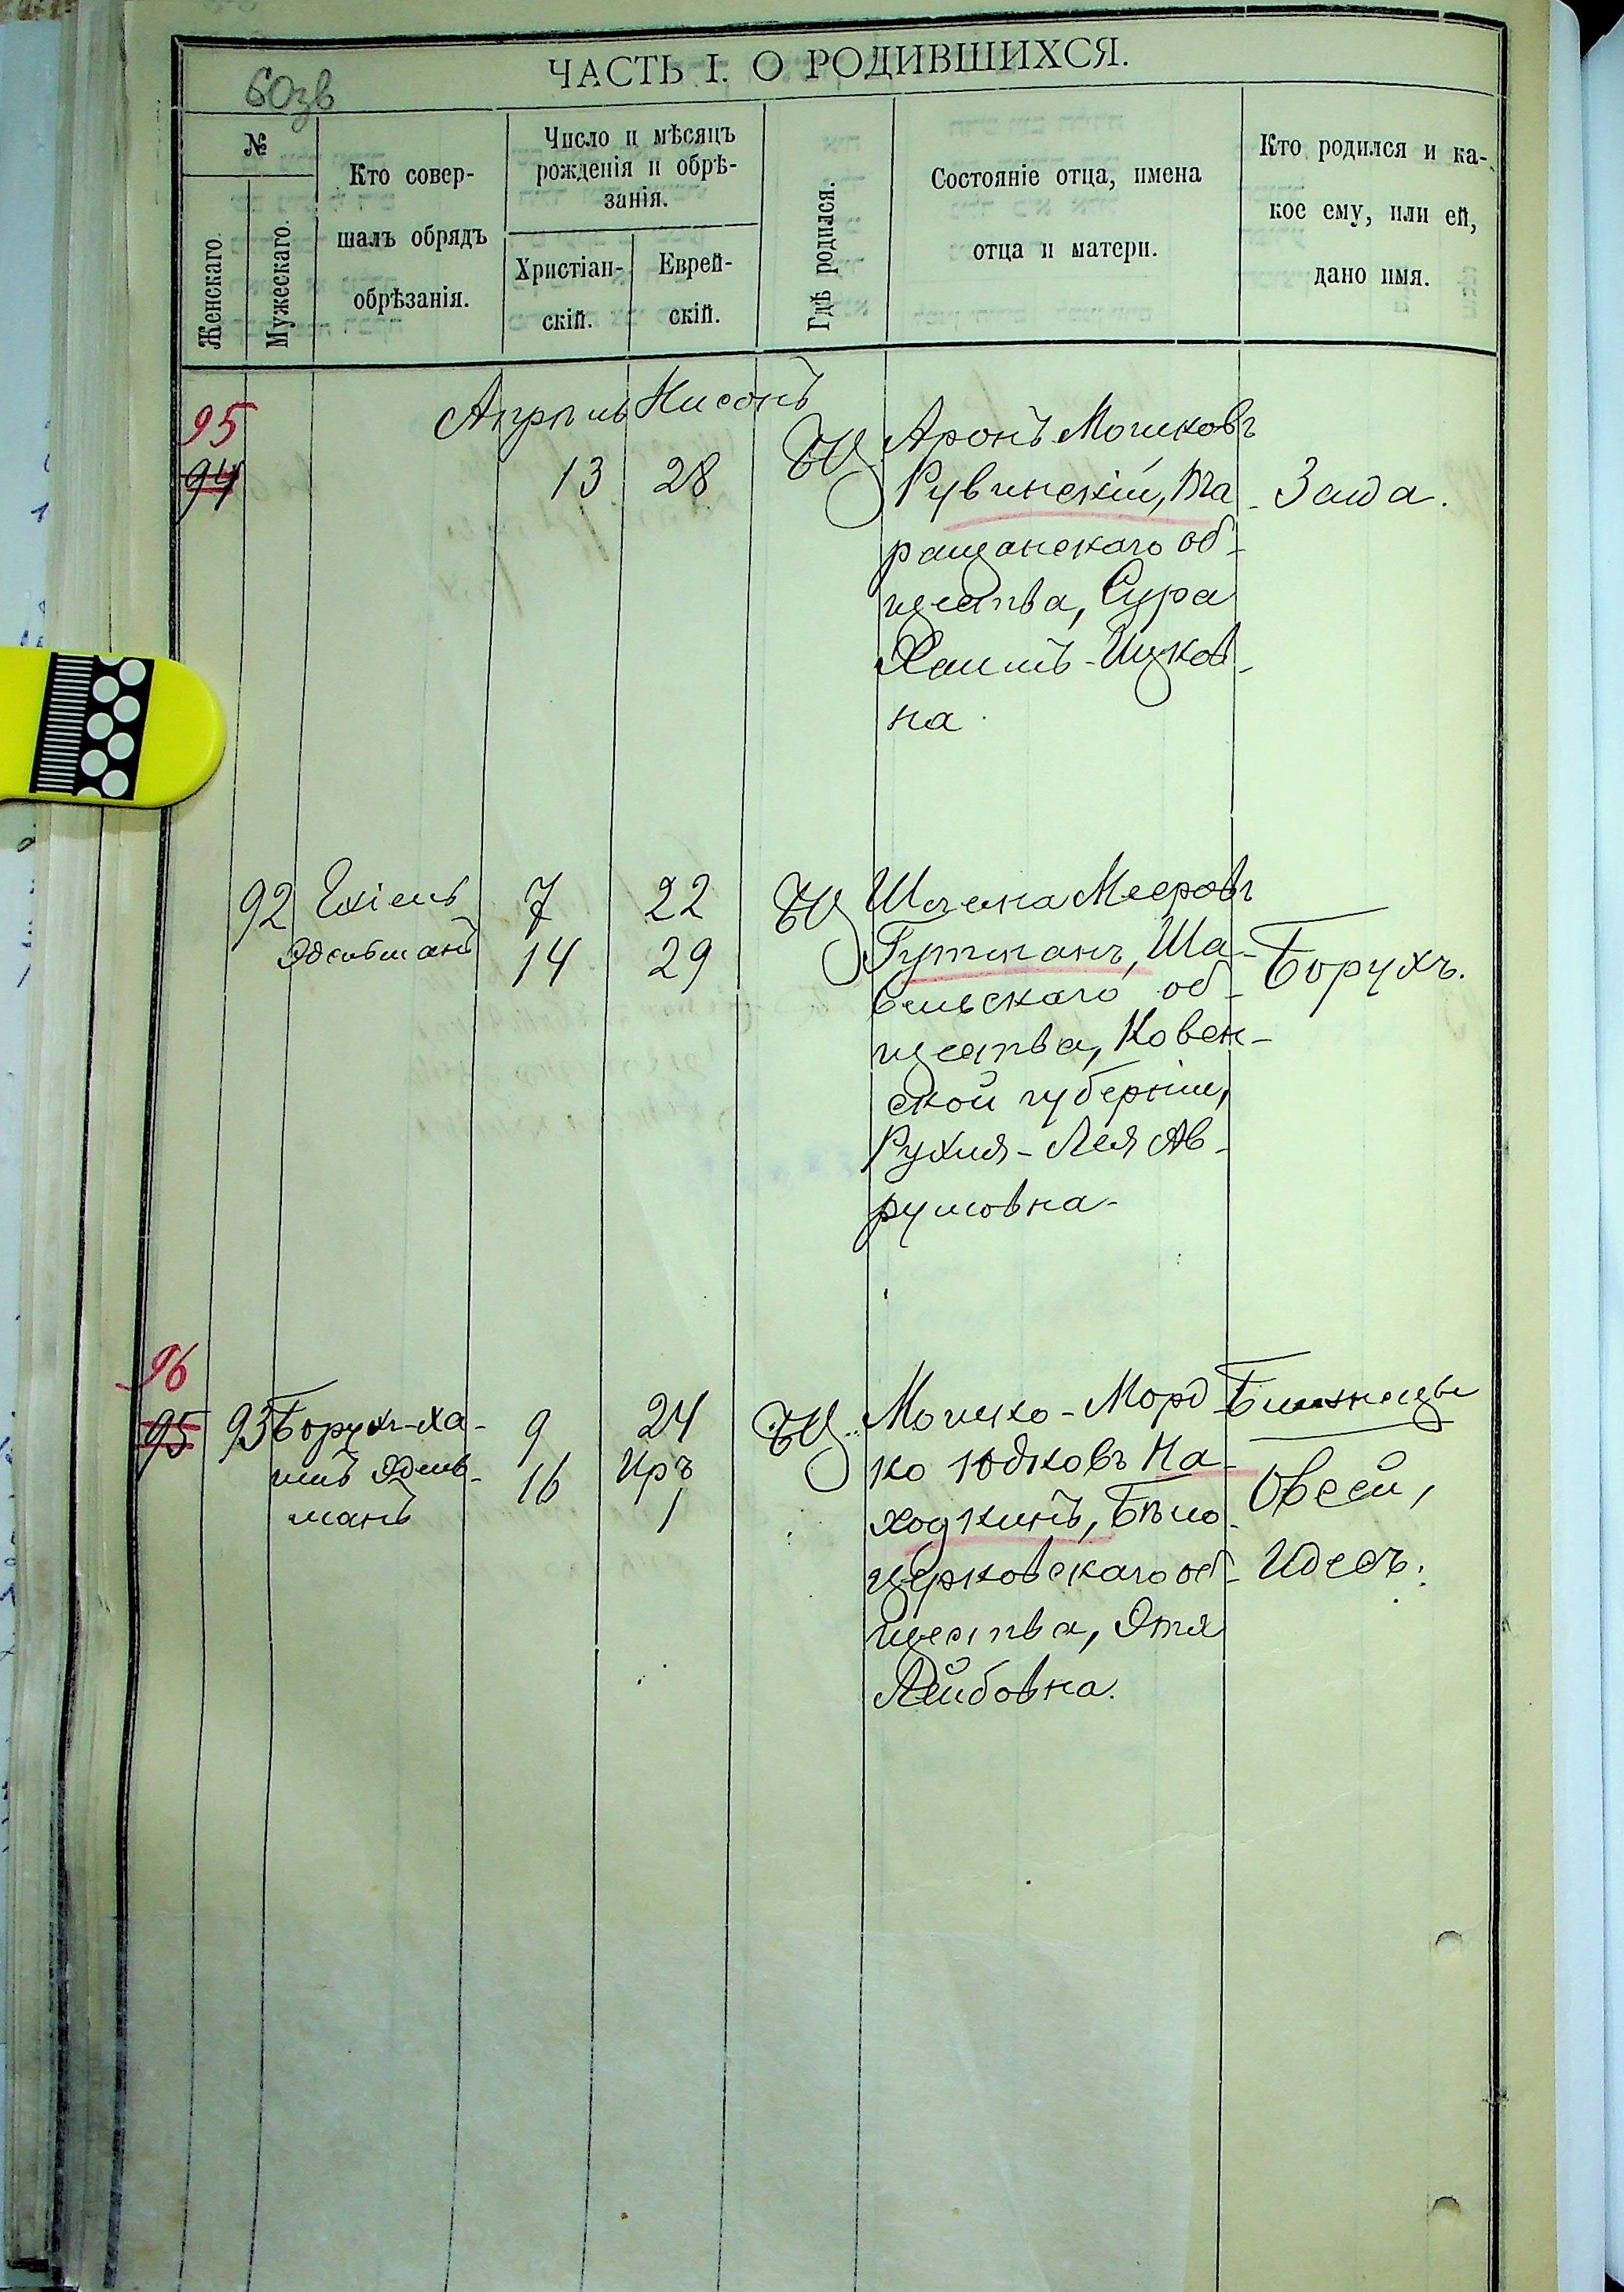 60зв
ЧАСТЬ I. О РОДИВШИХСЯ.
№
Женскаго.
Мужескаго.
Кто совер-
шалъ обрядъ
обрѣзанія.
Число и мѣсяцъ
рожденія и обрѣ-
занія.
Христіан-
скій.
Еврей-
скій.
Гдѣ родился.
Состояніе отца, имена
отца и матери.
Кто родился и ка-
кое ему, или ей,
дано имя.
Апрѣль Нисонъ
95
94
13 28
БЦ
Аронъ Мошковъ
Рувинскій, Та
ращанскаго об-
щества, Сура
Хаимъ-Ицков-
на
Злата.
92
Ехіель
Эдельманъ
7 22
14 29
БЦ
Шлема Мееровъ
Гутманъ, Ша-
вельскаго об-
щества, Ковен-
ской губерніи,
Рухля-Лея Ав-
румовна
Борухъ.
96
95 93
Борухъ-Ха-
имъ Эдель-
манъ
9 24
16 Иръ
1
БЦ.
Мошко-Морд
ко Юдковъ На-
ходкинъ, Бѣло
церковскаго об-
щества, Этя
Лейбовна.
Близнецы
Овсей,
Идесъ.